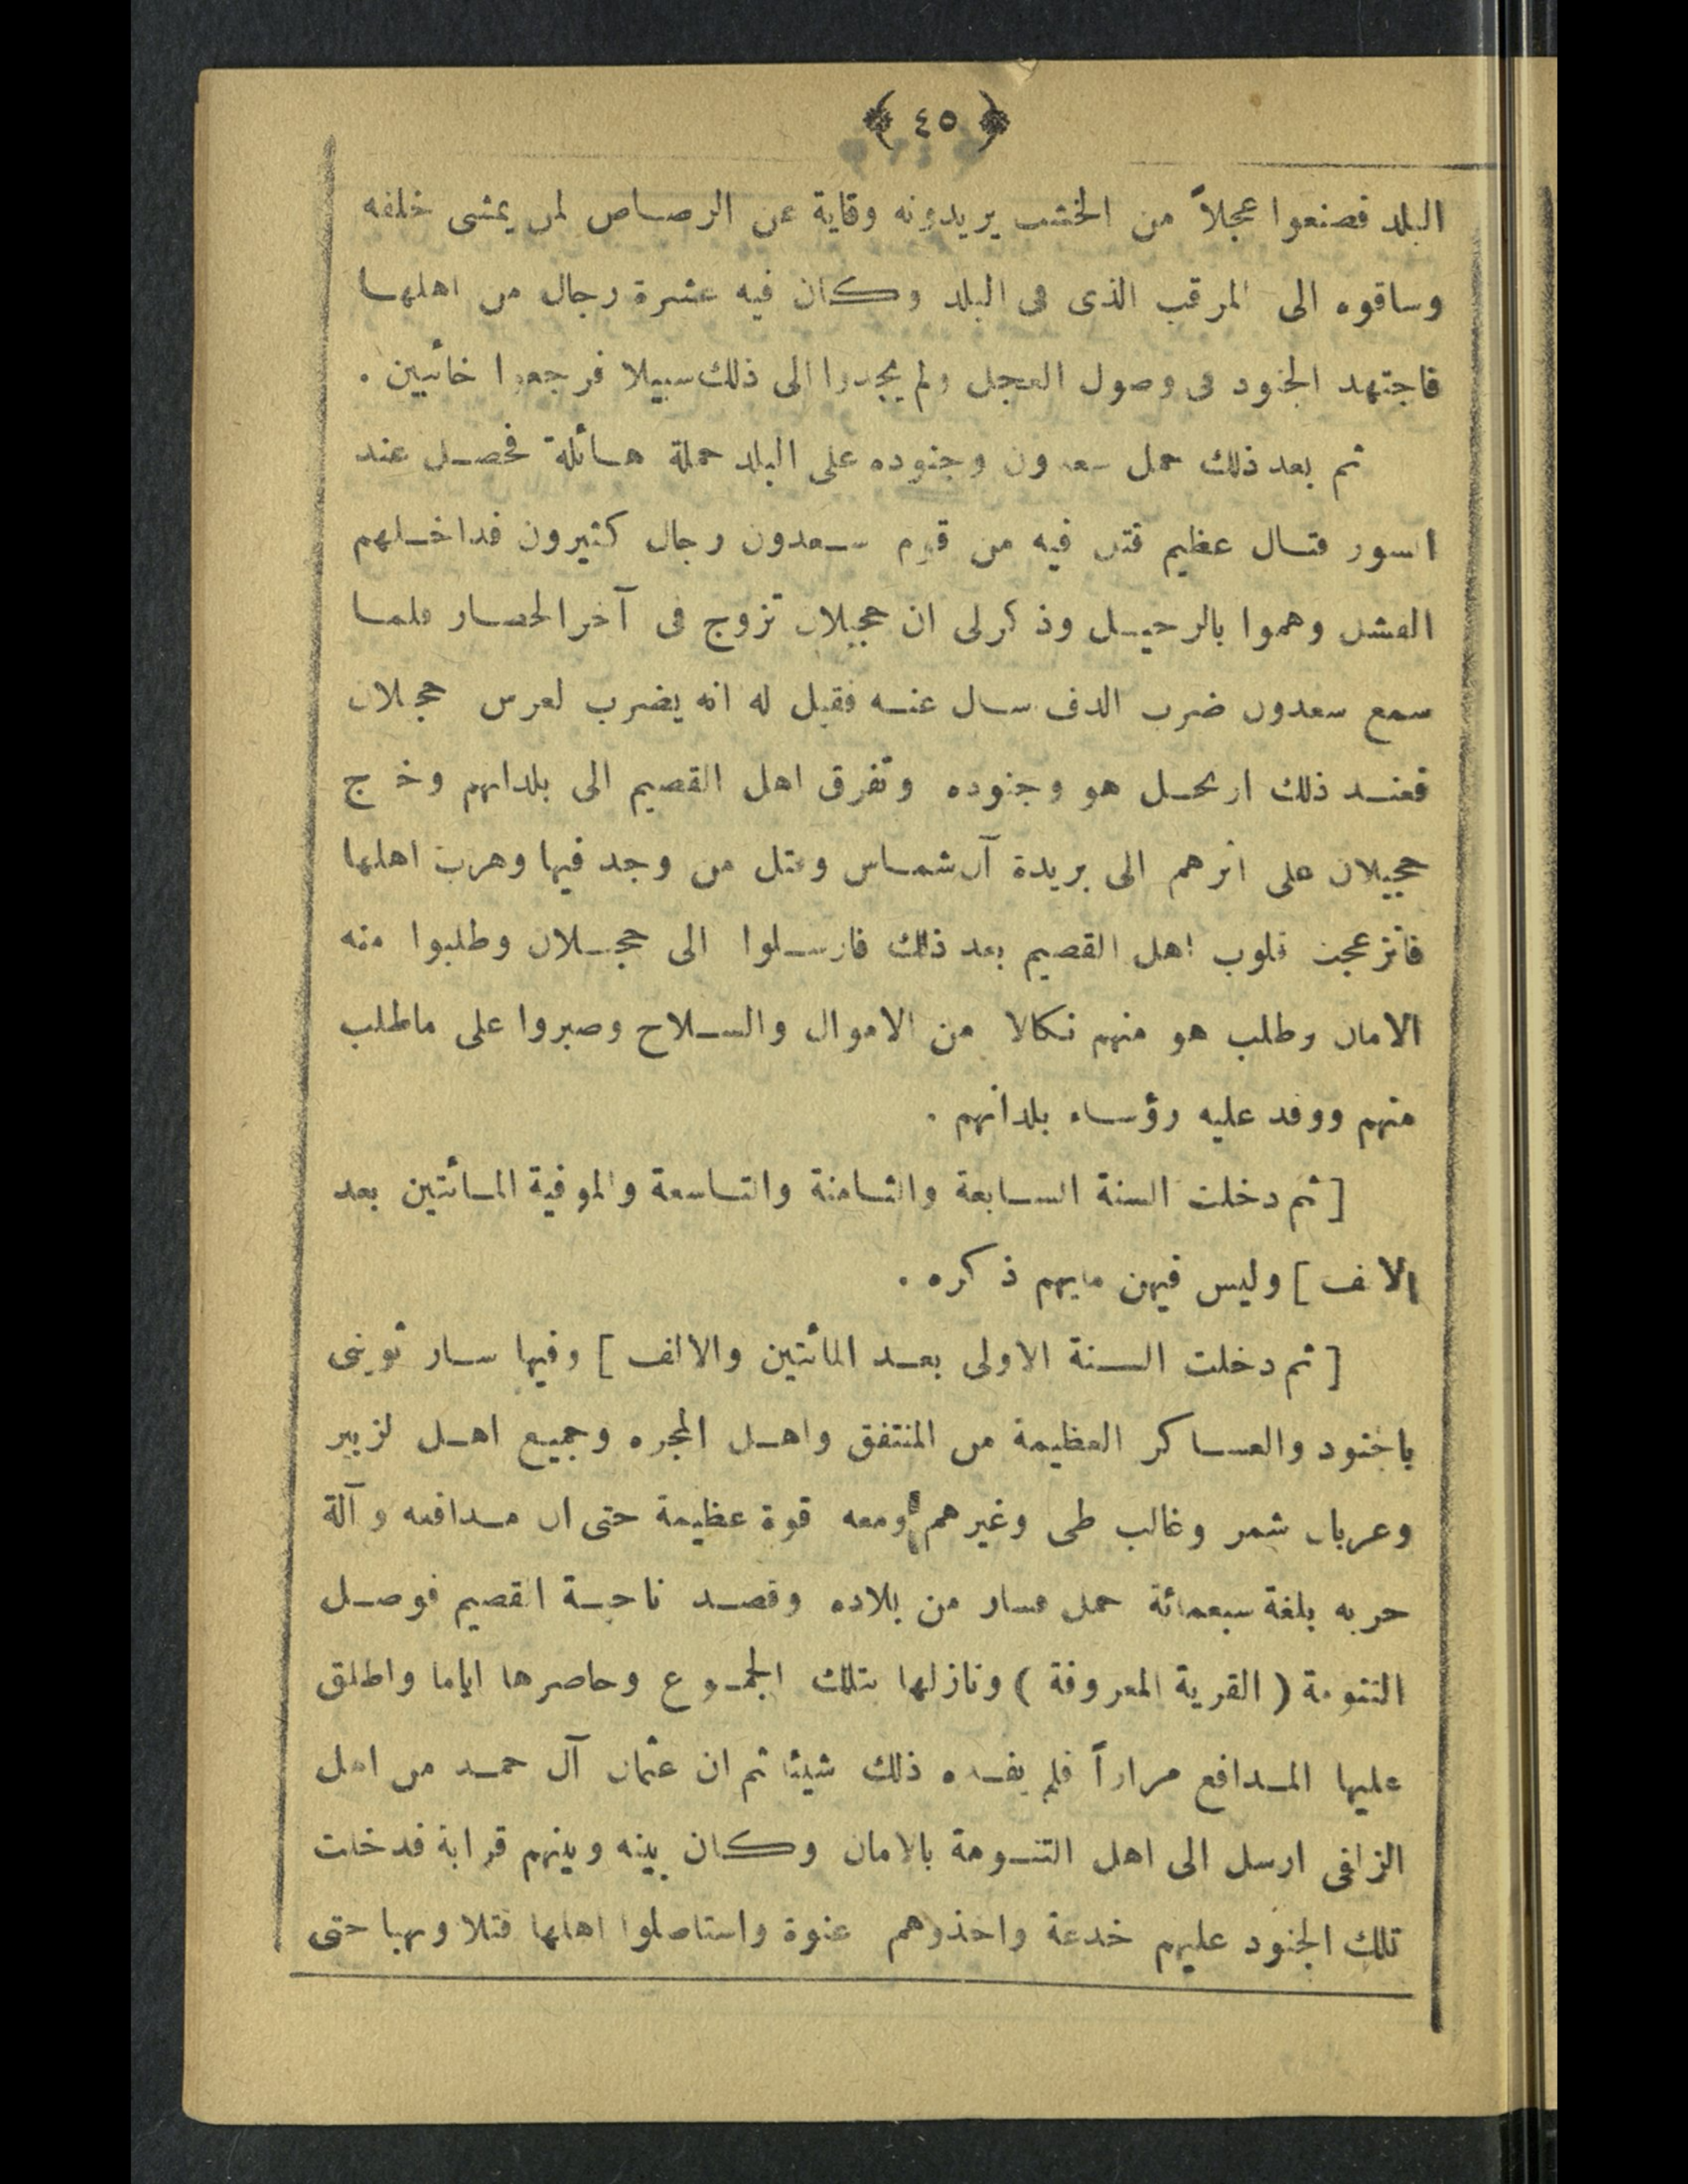 ٤٥
البلد فصنعوا عجلاً من الخشب يريدونه وقاية عن الرصاص لمن يمشى خلفه
وساقوه الى المرقب الذى فى البلد وكان فيه عشرة رجال من اهلها
فاجتهد الجنود فى وصول العجل ولم يجدوا الى ذلك سبيلا فرجعوا خائبين .
ثم بعد ذلك حمل سعدون وجنوده على البلد حملة هائلة فحصل عند
السور قتال عظيم قتل فيه من قوم سعدون رجال كثيرون فداخلهم
الفشل وهموا بالرحيل وذكر لى ان حجيلان تزوج فى آخر الحصار فلما
سمع سعدون ضرب الدف سال عنه فقيل له انه يضرب لعرس حجلان
فعند ذلك ارتحل هو وجنوده وتفرق اهل القصيم الى بلدانهم وخ ج
حجيلان على اثرهم الى بريدة آل شماس وقتل من وجد فيها وهرب اهلها
فانزعجت قلوب اهل القصيم بعد ذلك فارسلوا الى حجلان وطلبوا منه
الامان وطلب هو منهم نكالا من الاموال والسلاح وصبروا على ماطلب
منهم ووفد عليه رؤساء بلدانهم .
[ ثم دخلت السنة السابعة والثامنة والتاسعة والموفية المائتين بعد
الالف ] وليس فيهن مايهم ذكره .
[ ثم دخلت السنة الاولى بعد المائتين والالف ] وفيها سار ثوينى
بالجنود والعساكر العظيمة من المنتفق واهل المجره وجميع اهل لزبير
وعربان شمر وغالب طى وغيرهم ومعه قوة عظيمة حتى ان مدافعه وآلة
حربه بلغة سبعمائة حمل فسار من بلاده وقصد ناحية القصيم فوصل
التنومة ( القرية المعروفة ) ونازلها بتلك الجموع وحاصرها اياما واطلق
عليها المدافع مراراً فلم يفده ذلك شيئا ثم ان عثمان آل حمد من اهل
الزلفى ارسل الى اهل التنومة بالامان وكان بينه وبينهم قرابة فدخلت
تلك الجنود عليهم خدعة واخذوهم عنوة واستاصلوا اهلها قتلا ونهبا حتى